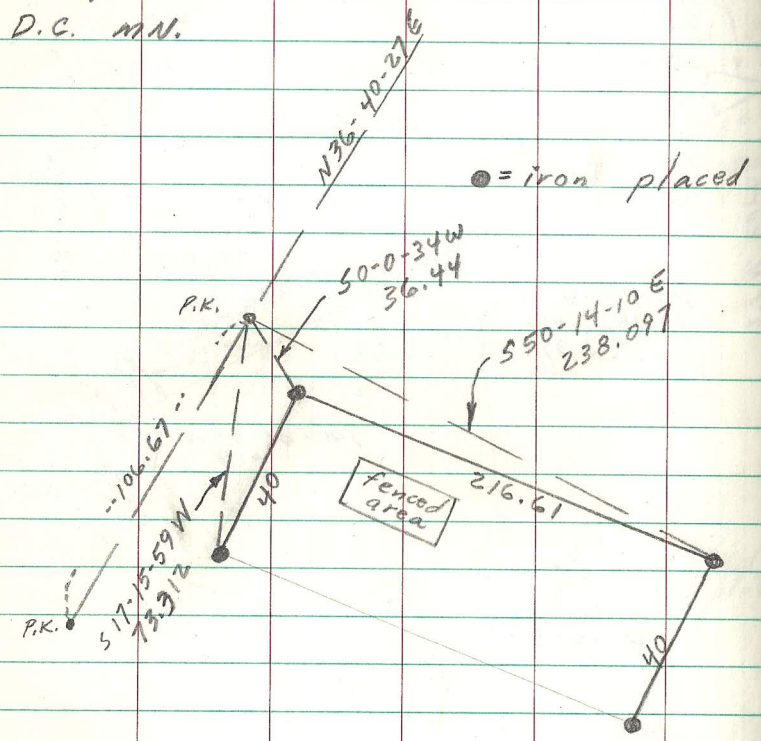 D.C. MN.
N36-40-27E
● = iron placed
S0-0-34W
36.44
P.K.
S50-14-10E
238.097
--106.67--
40
216.61
fenced
area
S17-15-59W
73.312
P.K.
40